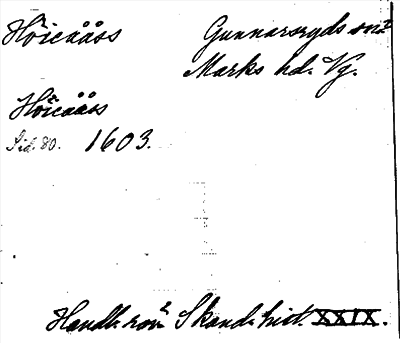 Höicååss Gunnarsryds sn
Marks hd. Vg.
Höicååss
Sid. 80. 1603.
Handl. rör Skand. hist. XXIX.